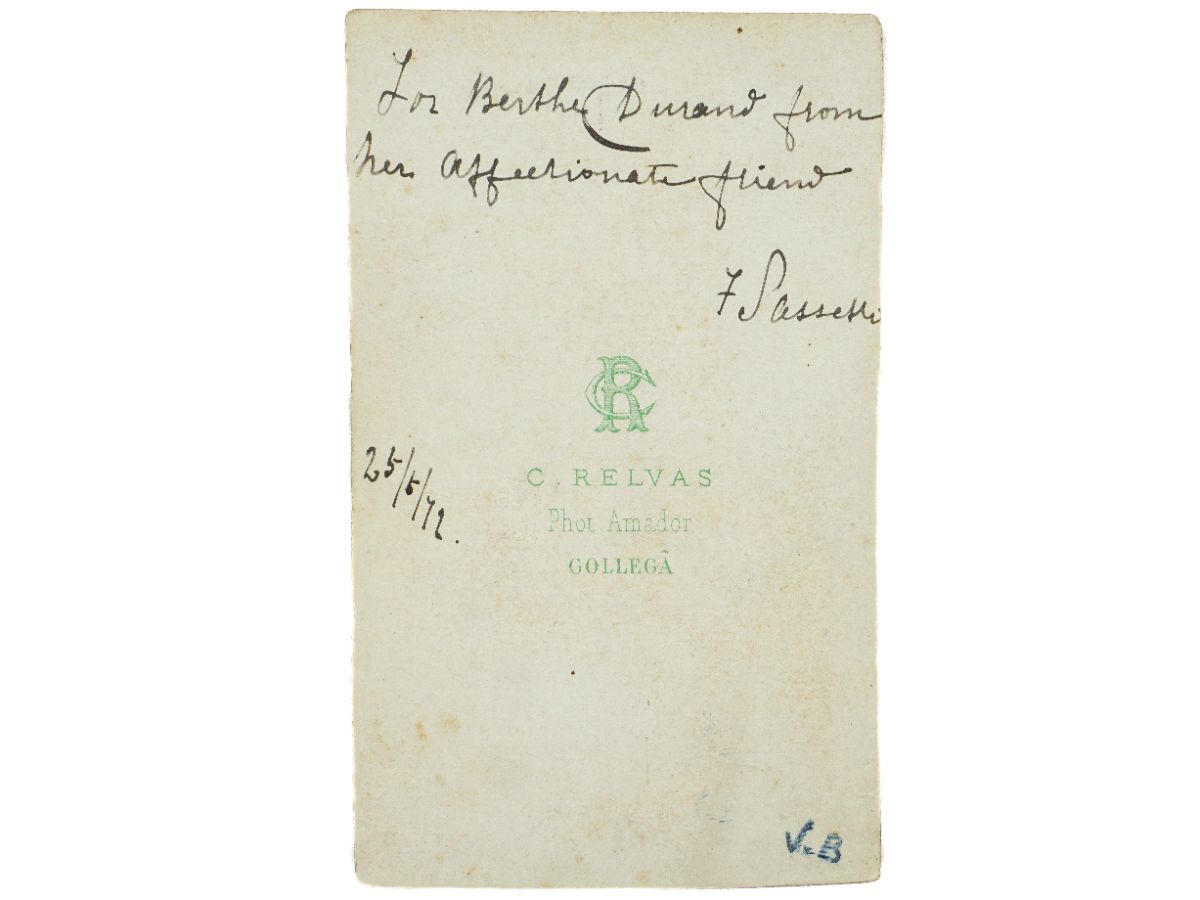 For Berthe Durand from
her affectionate friend
F Sassetti
CR
C. RELVAS
25/5/72.
Phot Amador
GOLLEGÃ
V.B